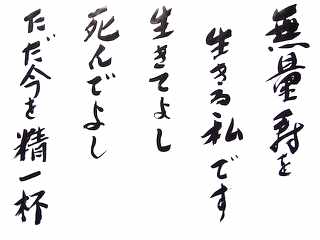 無量寿を
生きる私です
生きてよし
死んでよし
ただ今を精一杯